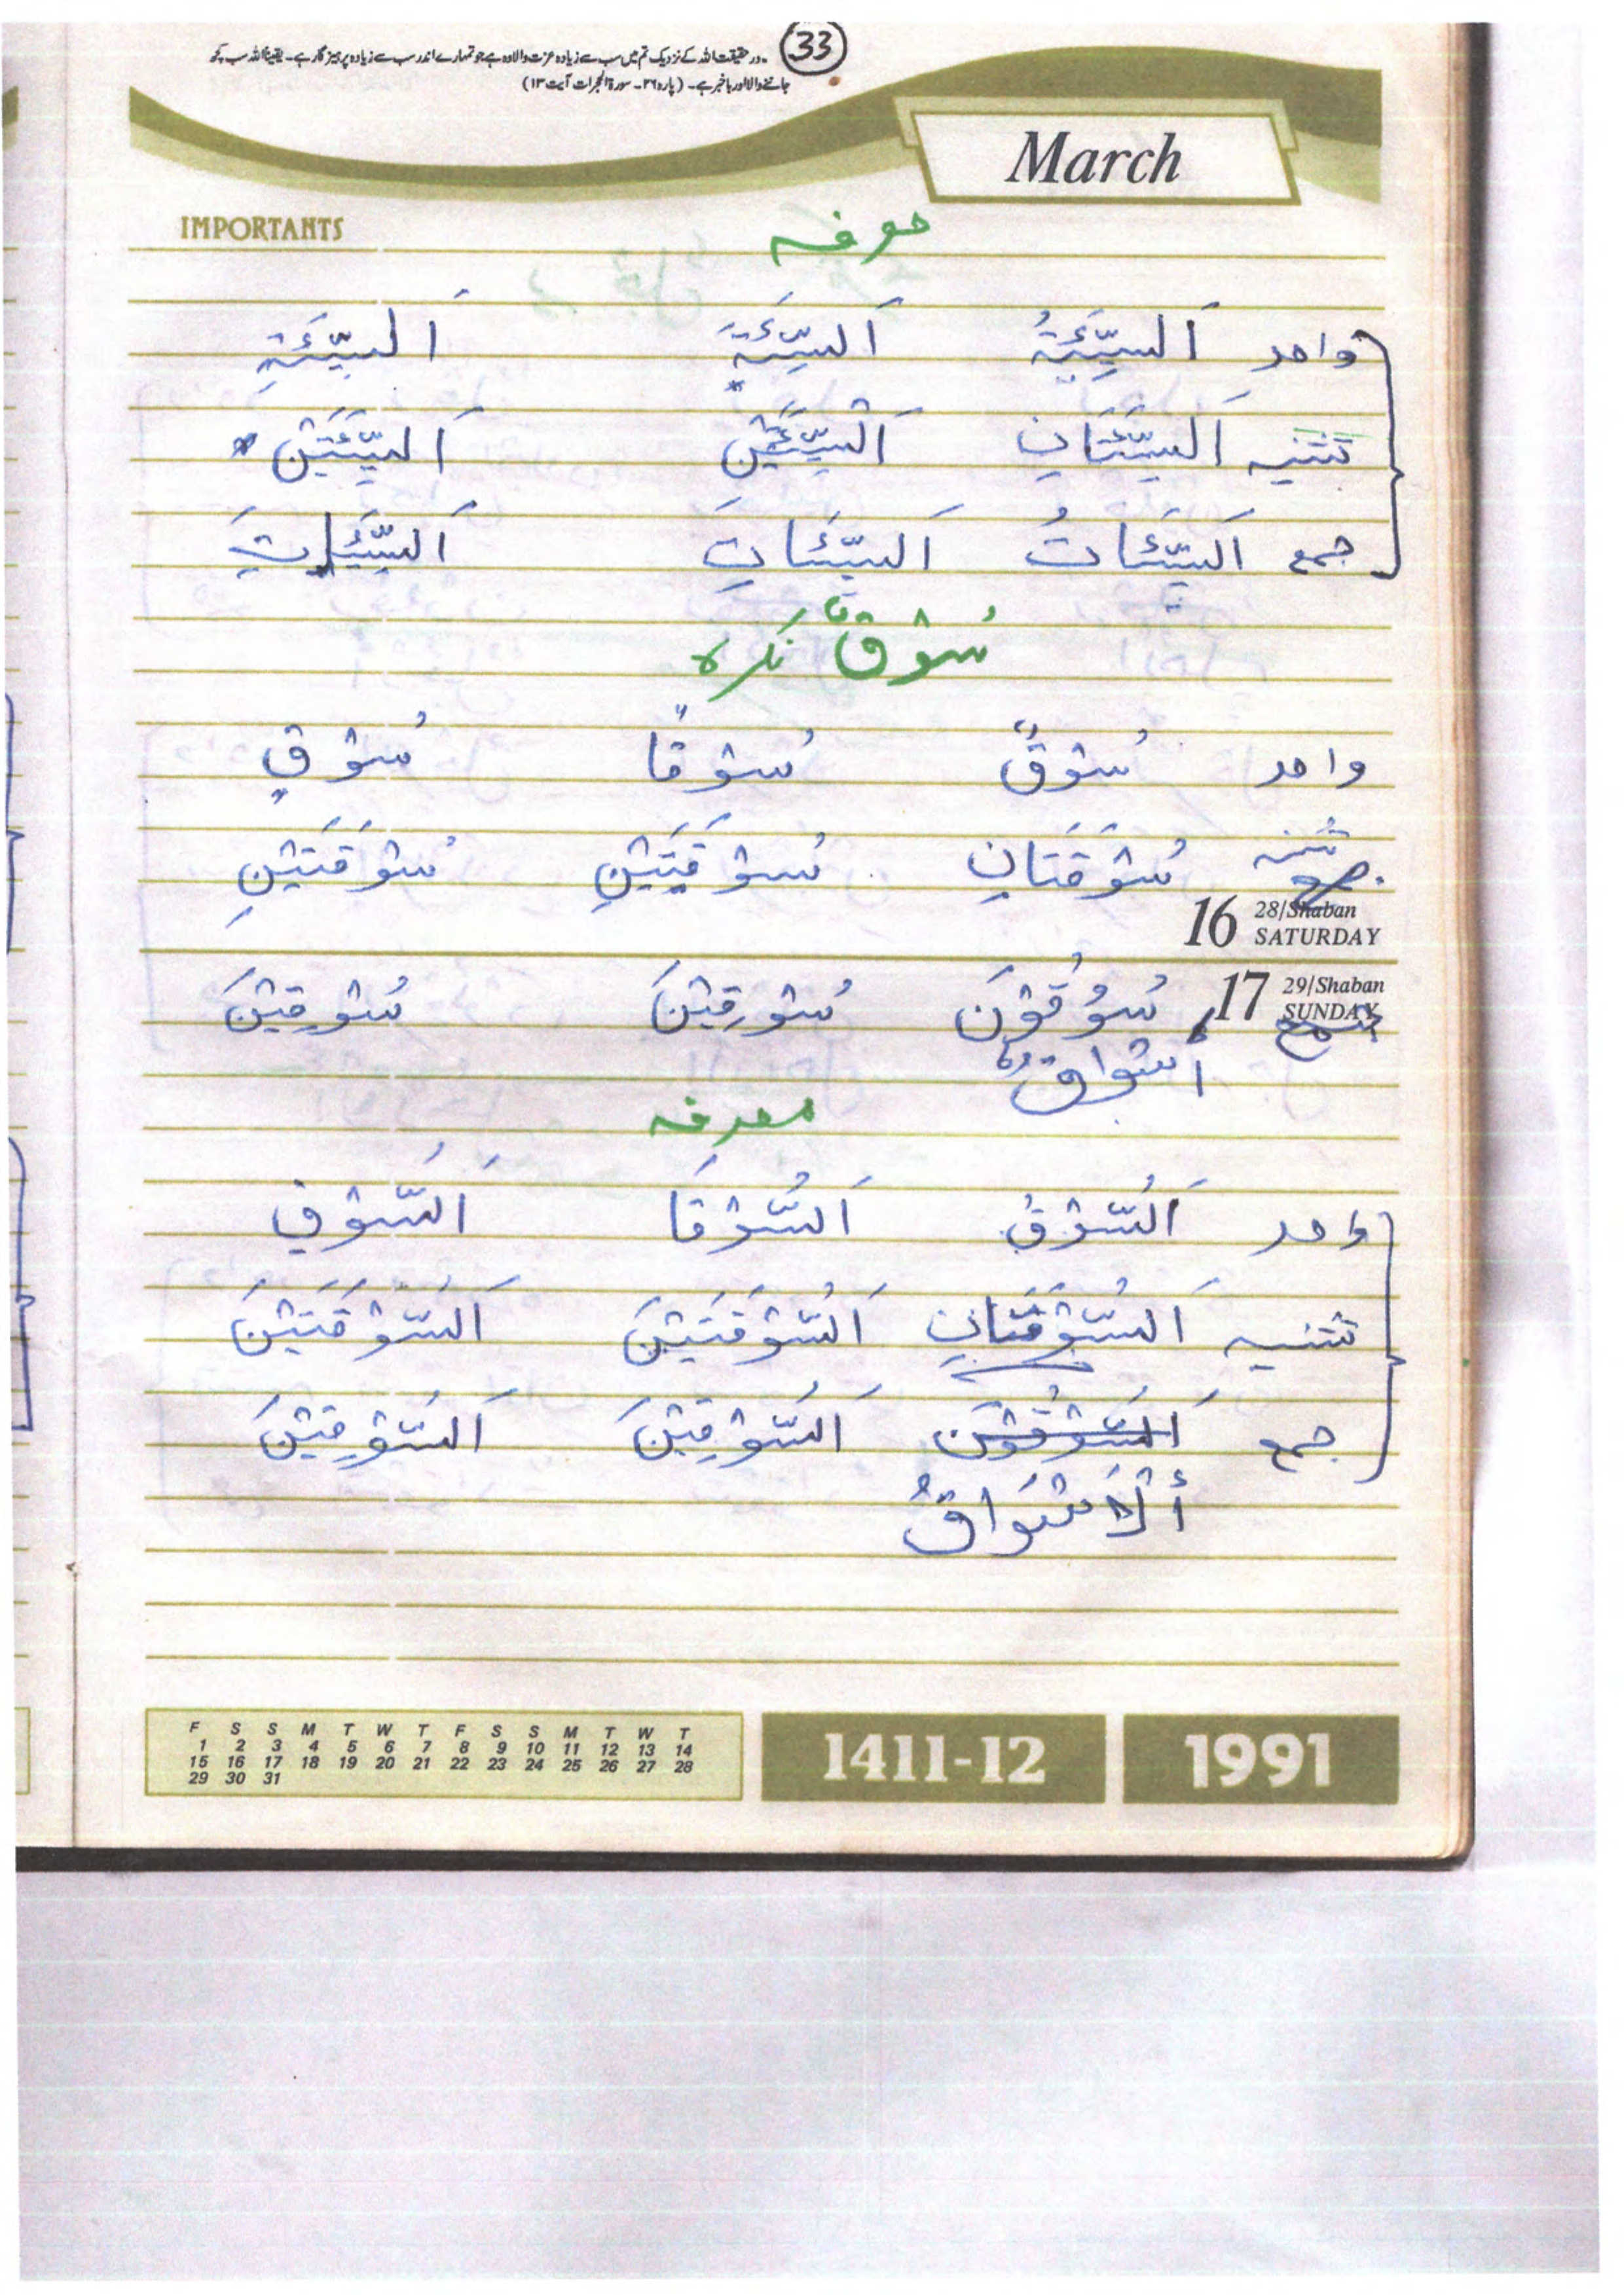 33
در حقیقت اللہ کے نزدیک تم میں سب سے زیادہ عزت والا وہ ہے جو تمہارے اندر سب سے زیادہ پرہیزگار ہے۔ یقیناً اللہ سب کچھ
جاننے والا اور باخبر ہے۔ (پارہ ۲۶۔ سورۃ الحجرات آیت ۱۳)
March
IMPORTANTS
معرفہ
واحد اَلسَّیِّئَةُ اَلسَّیِّئَةَ اَلسَّیِّئَةِ
تثنیہ اَلسَّیِّئَتَانِ اَلسَّیِّئَتَیْنِ اَلسَّیِّئَتَیْنِ
جمع اَلسَّیِّئَاتُ اَلسَّیِّئَاتِ اَلسَّیِّئَاتِ
سُوْقٌ نکرہ
واحد سُوْقٌ سُوْقًا سُوْقٍ
تثنیہ سُوْقَتَانِ سُوْقَتَیْنِ سُوْقَتَیْنِ
جمع
16 28/Shaban
SATURDAY
17 29/Shaban
SUNDAY
جمع سُوْقُوْنَ سُوْقِیْنَ سُوْقِیْنَ
أسْوَاقٌ
معرفہ
واحد اَلسُّوْقُ اَلسُّوْقَا اَلسُّوْقِ
تثنیہ اَلسُّوْقَتَانِ اَلسُّوْقَتَیْنَ اَلسُّوْقَتَیْنَ
جمع اَلسُّوْقُوْنَ اَلسُّوْقِیْنَ اَلسُّوْقِیْنَ
أَلْاَسْوَاقُ
F S S M T W T F S S M T W T
1 2 3 4 5 6 7 8 9 10 11 12 13 14
15 16 17 18 19 20 21 22 23 24 25 26 27 28
29 30 31
1411-12
1991